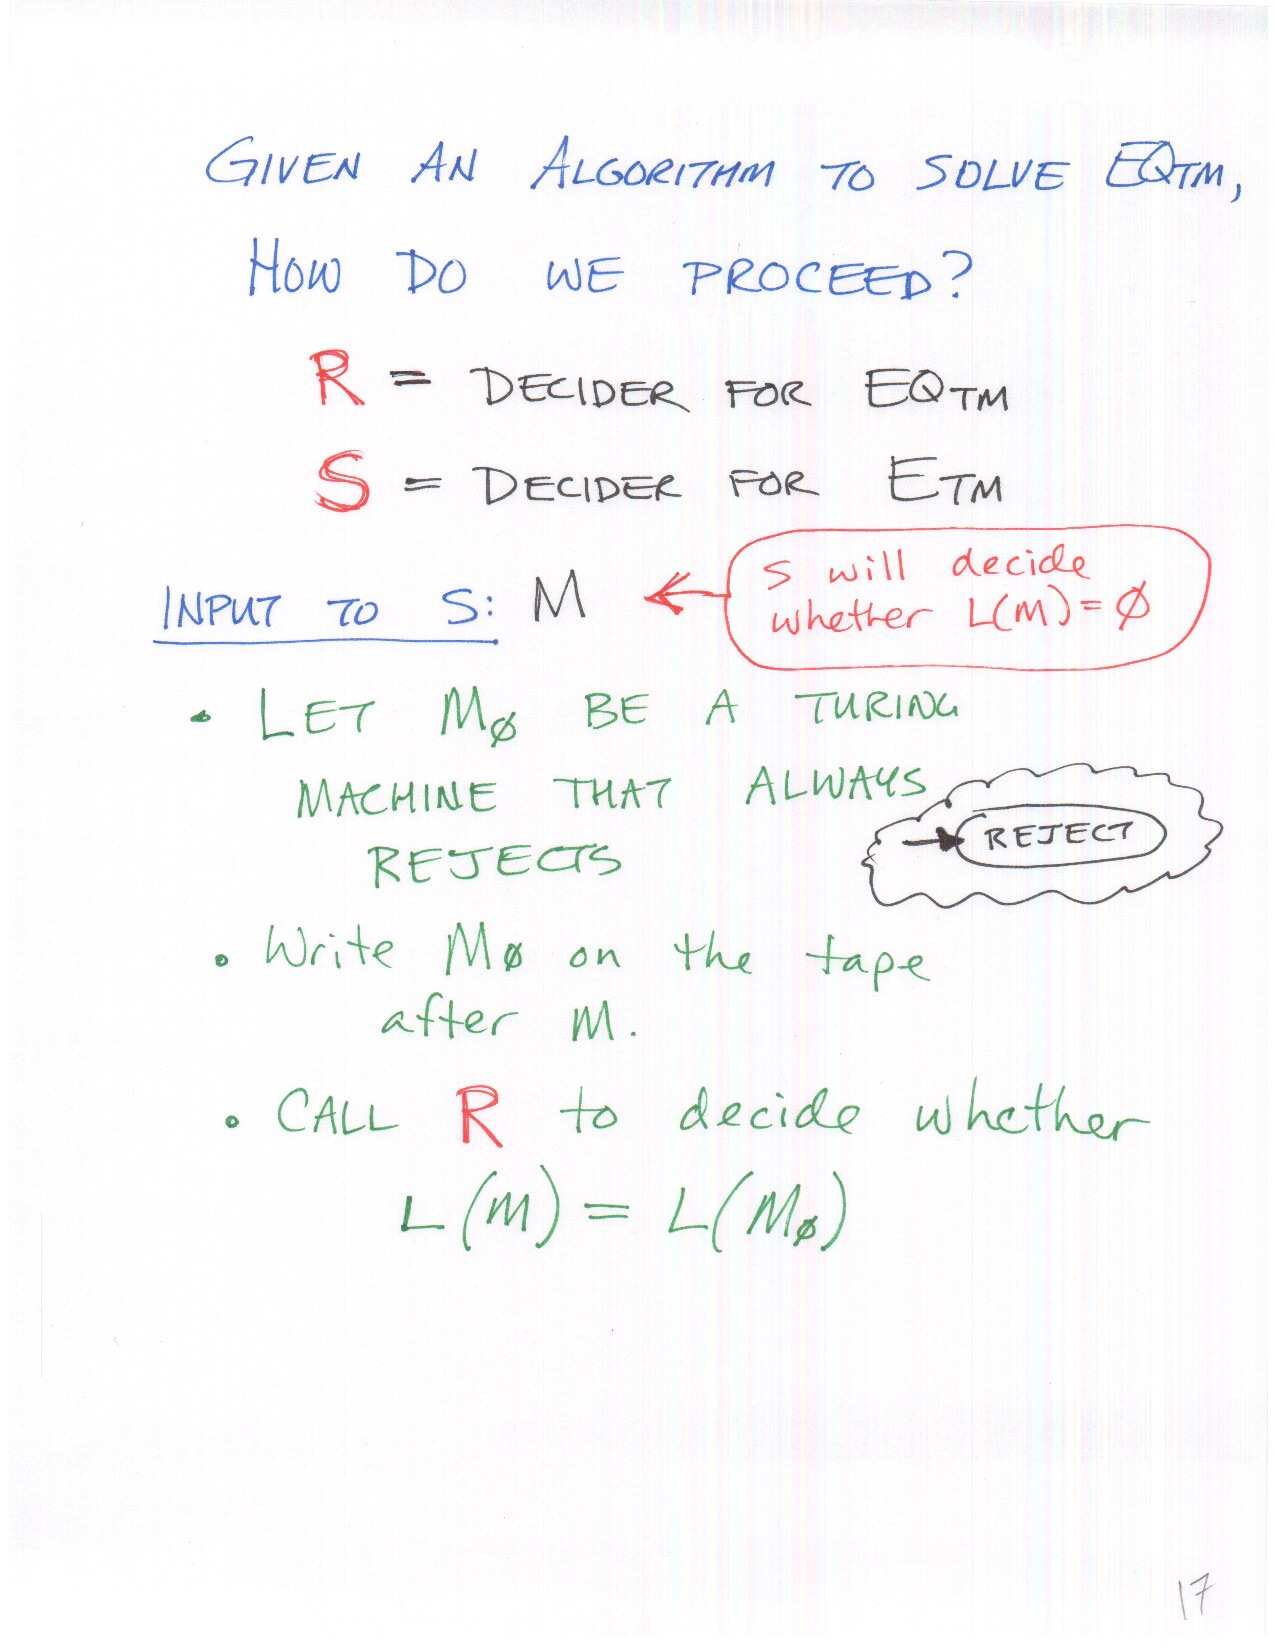 GIVEN AN ALGORITHM TO SOLVE EQTM,
HOW DO WE PROCEED?
R = DECIDER FOR EQTM
S = DECIDER FOR ETM
INPUT TO S: M
S will decide
whether L(M) = ∅
• LET M∅ BE A TURING
MACHINE THAT ALWAYS
REJECTS
REJECT
• Write M∅ on the tape
after M.
• CALL R to decide whether
L(M) = L(M∅)
17